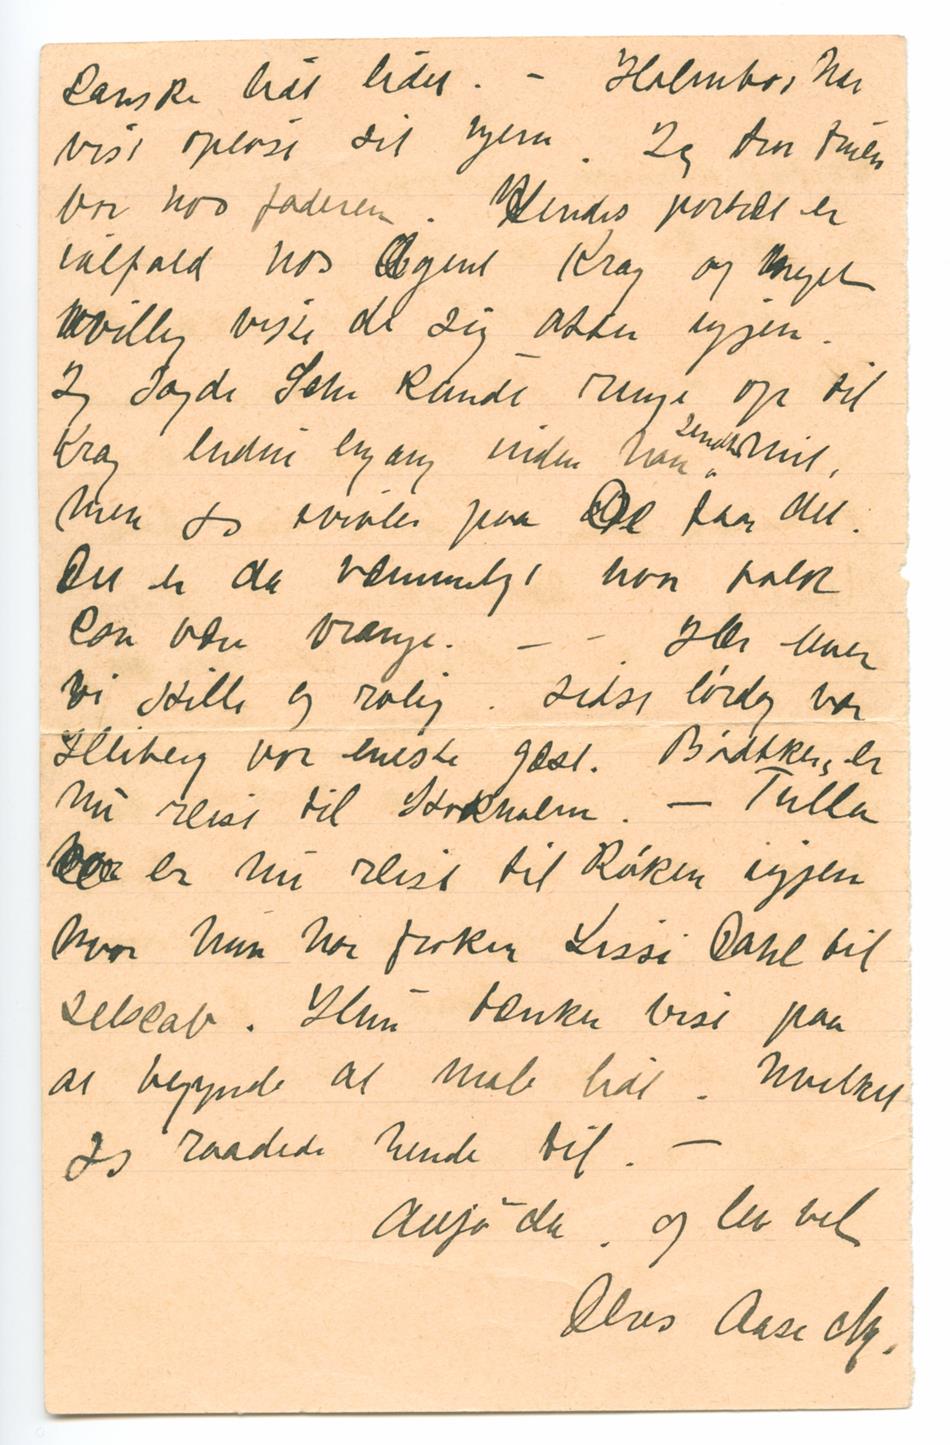 ganske lidt lidet. – Holmboe har
vist opløst sit hjem. Jeg tror fruen
bor hos faderen. Hendes portræt er
ialfald hos Agent Krag og meget
uvillig viste de sig atter igjen.
Jeg sagde Sche kunde ringe op til
Krag endnu engang inden han sendte mit,
men jeg tviler paa De faar det.
Det er da væmmeligt hvor folk
kan være vrange. – – Her lever
vi stille og rolig. Sidst lørdag var
Heiberg vor eneste gæst. Bødtker, er
nu reist til Stockholm. – Tulla
er nu reist til Røken igjen
hvor hun har frøken Lissi Dahl til
selscab. Hun tænker vist paa
at begynde at male lidt. hvilket
jeg raadede hende til. –
Adjø da, og lev vel
Deres Aase N.